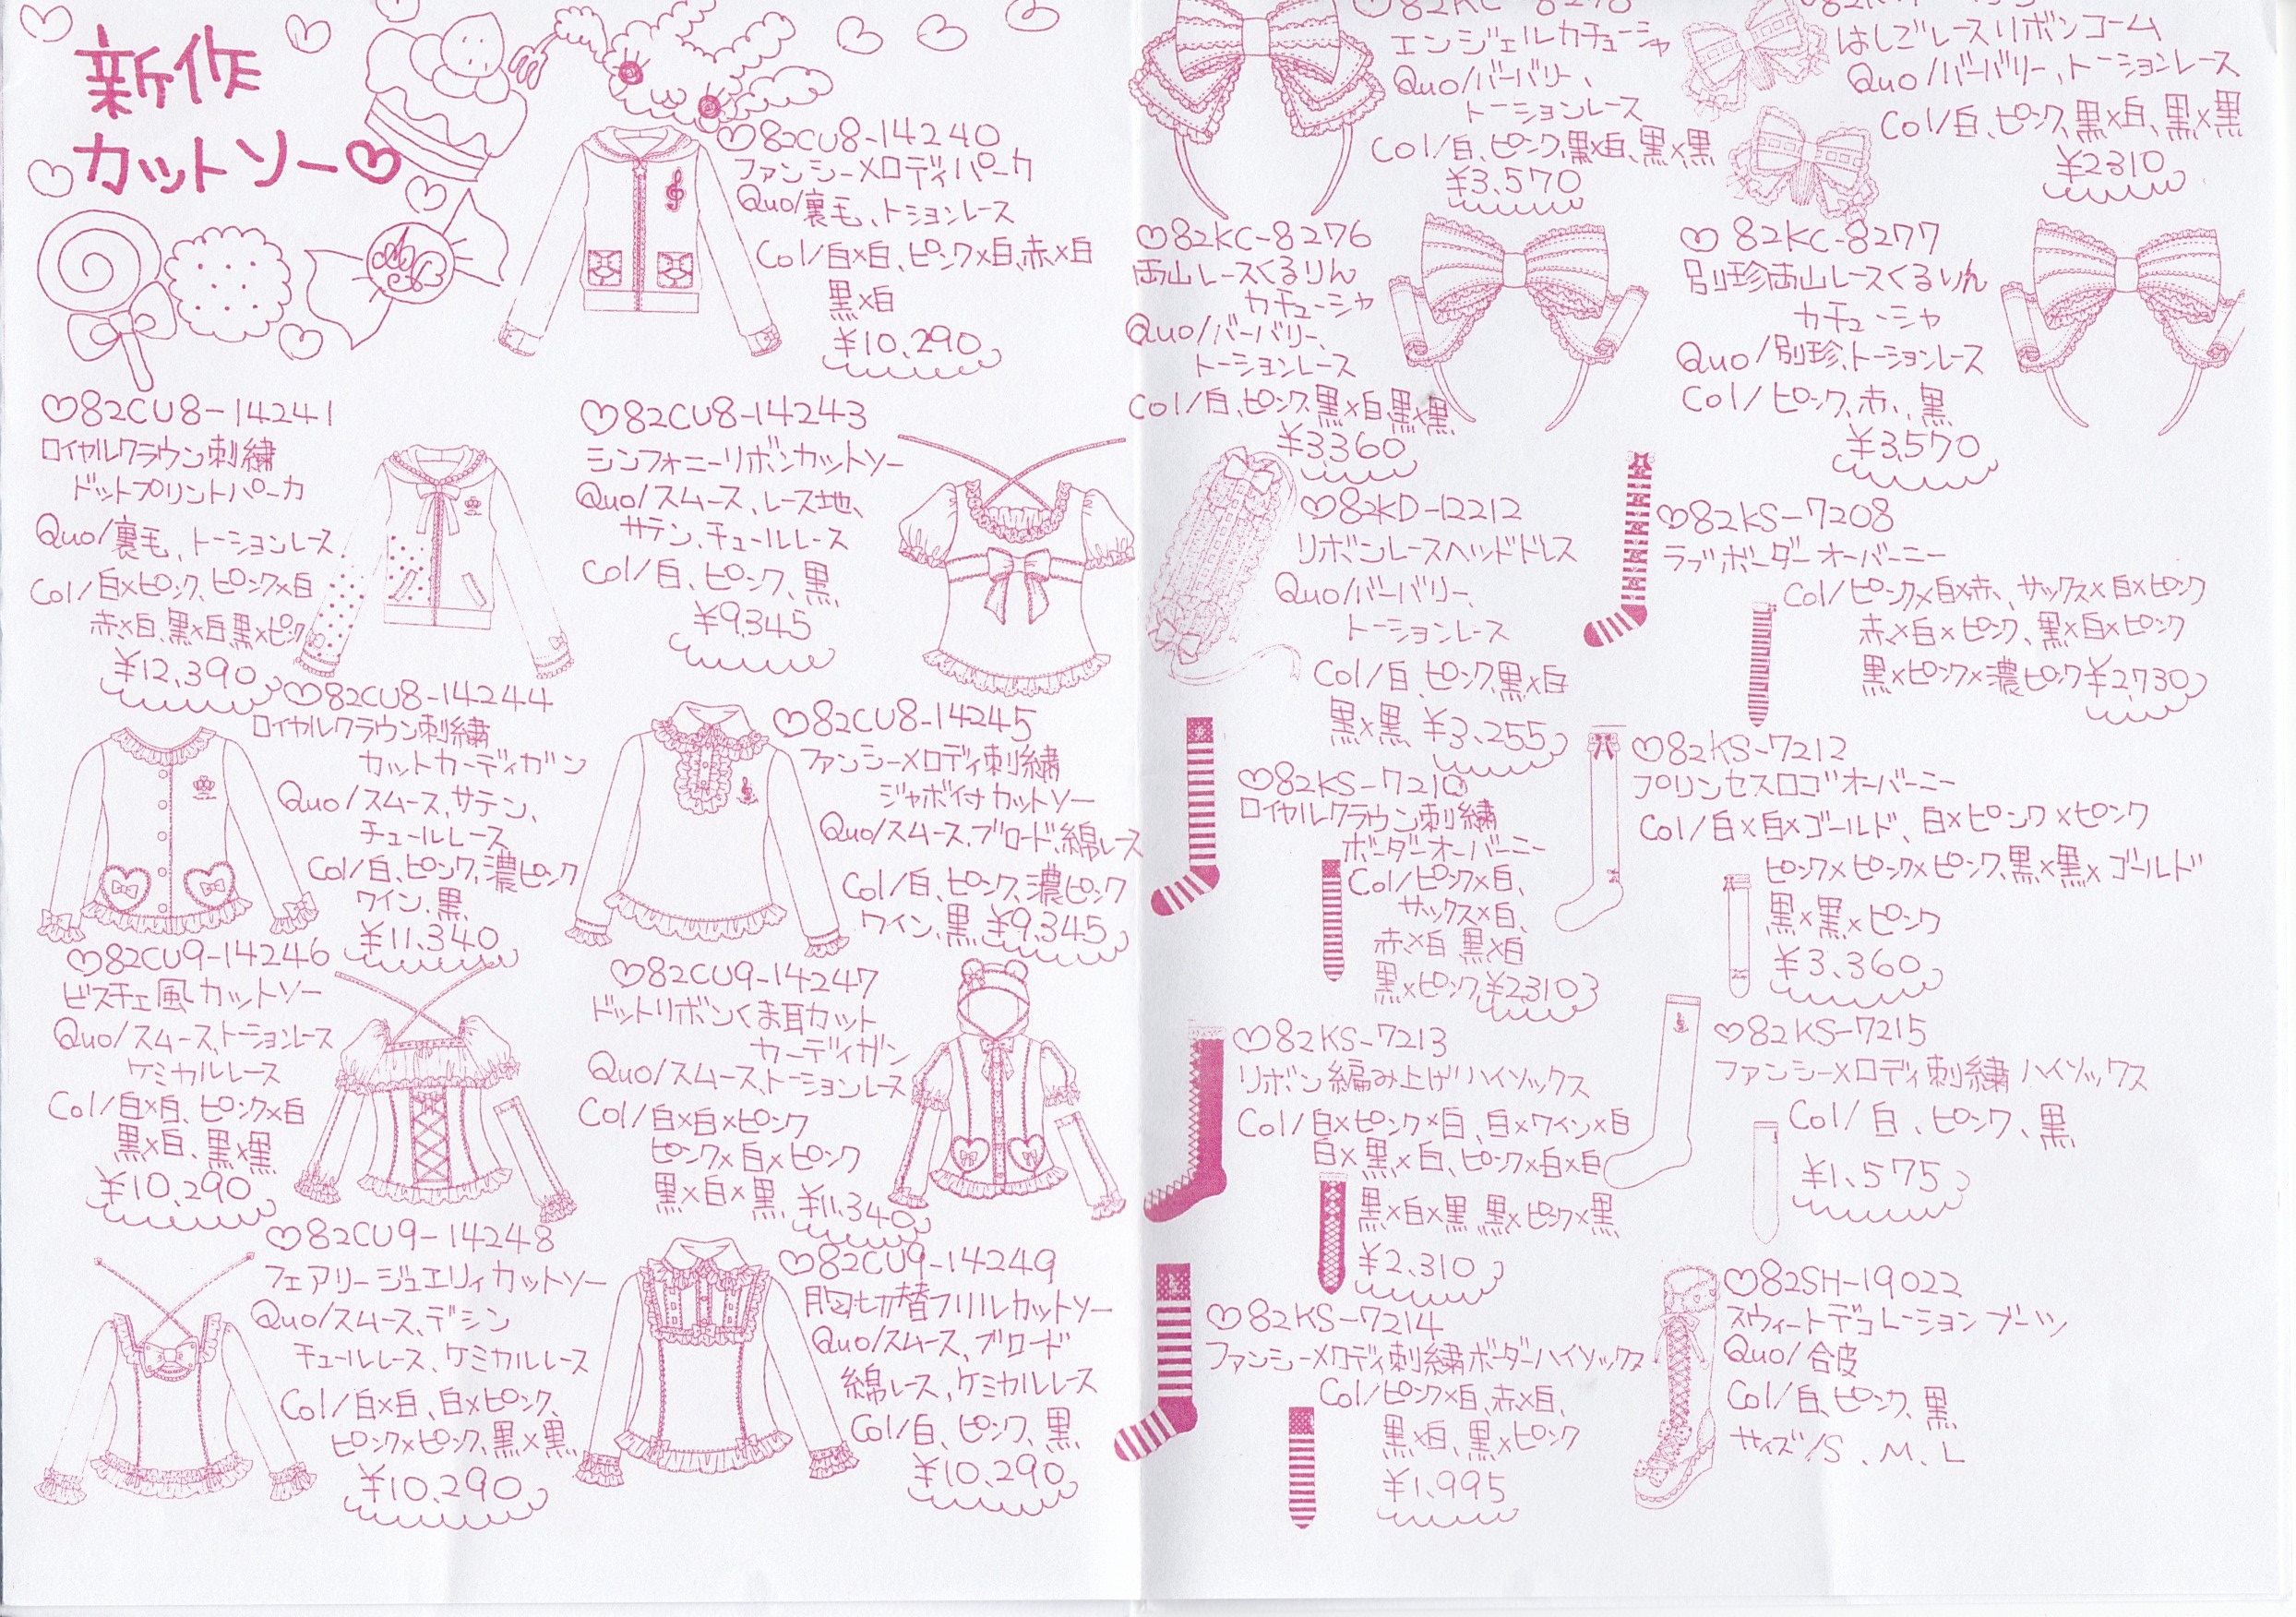 新作
カットソー♡
♡82CU8-14240
ファンシーメロディパーカ
Quo/裏毛、トションレース
Col/白×白、ピンク×白、赤×白
黒×白
¥10,290
♡82CU8-14241
ロイヤルクラウン刺繍
ドットプリントパーカ
Quo/裏毛、トーションレース
Col/白×ピンク、ピンク×白
赤×白、黒×白、黒×ピンク
¥12,390
♡82CU8-14243
シンフォニーリボンカットソー
Quo/スムース、レース地、
サテン、チュールレース
Col/白、ピンク、黒
¥9,345
♡82CU8-14244
ロイヤルクラウン刺繍
カットカーディガン
Quo/スムース、サテン、
チュールレース
Col/白、ピンク、濃ピンク
ワイン、黒
¥11,340
♡82CU8-14245
ファンシーメロディ刺繍
ジャボ付カットソー
Quo/スムース、ブロード、綿レース
Col/白、ピンク、濃ピンク
ワイン、黒 ¥9,345
♡82CU9-14246
ビスチェ風カットソー
Quo/スムース、トーションレース
ケミカルレース
Col/白×白、ピンク×白
黒×白、黒×黒
¥10,290
♡82CU9-14247
ドットリボンくま耳カット
カーディガン
Quo/スムース、トーションレース
Col/白×白×ピンク
ピンク×白×ピンク
黒×白×黒 ¥11,340
♡82CU9-14248
フェアリージュエリィカットソー
Quo/スムース、デシン
チュールレース、ケミカルレース
Col/白×白、白×ピンク、
ピンク×ピンク、黒×黒
¥10,290
♡82CU9-14249
胸切替フリルカットソー
Quo/スムース、ブロード
綿レース、ケミカルレース
Col/白、ピンク、黒
¥10,290
エンジェルカチューシャ
Quo/バーバリー、
トーションレース
Col/白、ピンク、黒×白、黒×黒
¥3,570
はしごレースリボンコーム
Quo/バーバリー、トーションレース
Col/白、ピンク、黒×白、黒×黒
¥2310
♡82KC-8276
両山レースくるりん
カチューシャ
Quo/バーバリー、
トーションレース
Col/白、ピンク、黒×白、黒×黒
¥3,360
♡82KC-8277
別珍両山レースくるりん
カチューシャ
Quo/別珍、トーションレース
Col/ピンク、赤、黒
¥3,570
♡82KD-12212
リボンレースヘッドドレス
Quo/バーバリー、
トーションレース
Col/白、ピンク、黒×白
黒×黒 ¥3,255
♡82KS-7208
ラブボーダーオーバーニー
Col/ピンク×白×赤、サックス×白×ピンク
赤×白×ピンク、黒×白×ピンク
黒×ピンク×濃ピンク ¥2,730
♡82KS-7210
ロイヤルクラウン刺繍
ボーダーオーバーニー
Col/ピンク×白、
サックス×白、
赤×白 黒×白
黒×ピンク ¥2,310
♡82KS-7212
プリンセスロゴオーバーニー
Col/白×白×ゴールド、白×ピンク×ピンク
ピンク×ピンク×ピンク、黒×黒×ゴールド
黒×黒×ピンク
¥3,360
♡82KS-7213
リボン編み上げハイソックス
Col/白×ピンク×白、白×ワイン×白
白×黒×白、ピンク×白×白
黒×白×黒、黒×ピンク×黒
¥2,310
♡82KS-7215
ファンシーメロディ刺繍ハイソックス
Col/白、ピンク、黒
¥1,575
♡82KS-7214
ファンシーメロディ刺繍ボーダーハイソックス
Col/ピンク×白、赤×白、
黒×白、黒×ピンク
¥1,995
♡82SH-19022
スウィートデコレーションブーツ
Quo/合皮
Col/白、ピンク、黒
サイズ/S、M、L